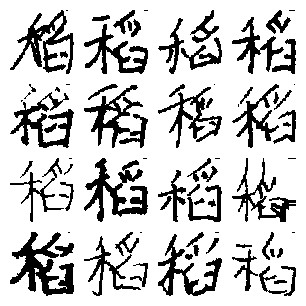 稻稻稻稻
稻稻稻稻
稻稻稻稻
稻稻稻稻